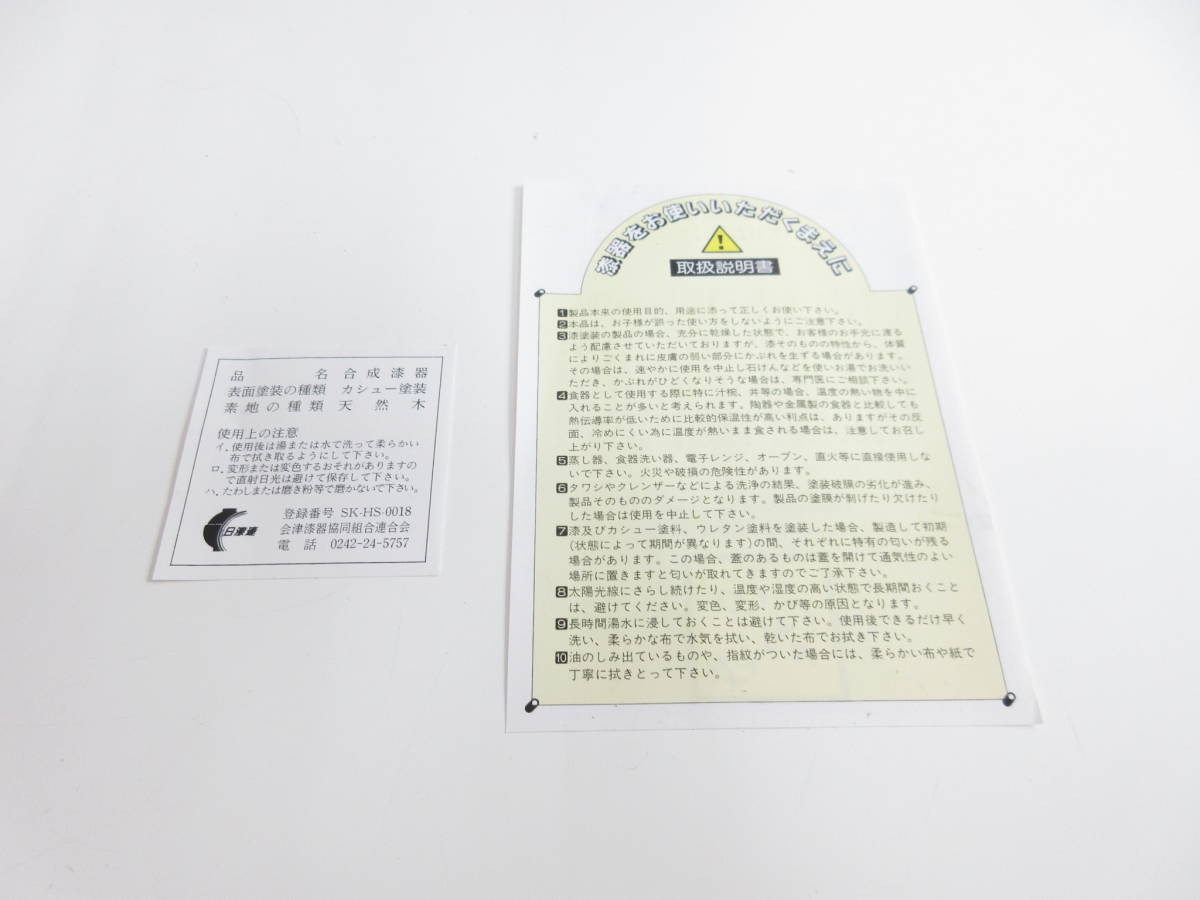 品名 合成漆器
表面塗装の種類 カシュー塗装
素地の種類 天然木
使用上の注意
イ、使用後は湯または水で洗って柔らかい
布で拭き取るようにして下さい。
ロ、変形または変色するおそれがありますの
で直射日光は避けて保存して下さい。
ハ、たわしまたは磨き粉等で磨かないで下さい。
日漆連
登録番号 SK-HS-0018
会津漆器協同組合連合会
電話 0242-24-5757
漆器をお使いいただくまえに
取扱説明書
1製品本来の使用目的、用途に添って正しくお使い下さい。
2本品は、お子様が誤った使い方をしないようにご注意下さい。
3漆塗装の製品の場合、充分に乾燥した状態で、お客様のお手元に渡る
よう配慮させていただいておりますが、漆そのものの特性から、体質
によりごくまれに皮膚の弱い部分にかぶれを生ずる場合があります。
その場合は、速やかに使用を中止し石けんなどを使いお湯でお洗いいた
だき、かぶれがひどくなりそうな場合は、専門医にご相談下さい。
4食器として使用する際に特に汁椀、丼等の場合、温度の熱い物を中に
入れることが多いと考えられます。陶器や金属製の食器と比較しても
熱伝導率が低いために比較的保温性が高い利点は、ありますがその反
面、冷めにくい為に温度が熱いまま食される場合は、注意してお召し
上がり下さい。
5蒸し器、食器洗い器、電子レンジ、オーブン、直火等に直接使用しな
いで下さい。火災や破損の危険性があります。
6タワシやクレンザーなどによる洗浄の結果、塗装破膜の劣化が進み、
製品そのもののダメージとなります。製品の塗膜が剝げたり欠けたり
した場合は使用を中止して下さい。
7漆及びカシュー塗料、ウレタン塗料を塗装した場合、製造して初期
(状態によって期間が異なります)の間、それぞれに特有の匂いが残る
場合があります。この場合、蓋のあるものは蓋を開けて通気性のよい
場所に置きますと匂いが取れてきますのでご了承下さい。
8太陽光線にさらし続けたり、温度や湿度の高い状態で長期間おくこと
は、避けてください。変色、変形、かび等の原因となります。
9長時間湯水に浸しておくことは避けて下さい。使用後できるだけ早く
洗い、柔らかな布で水気を拭い、乾いた布でお拭き下さい。
10油のしみ出ているものや、指紋がついた場合には、柔らかい布や紙で
丁寧に拭きとって下さい。